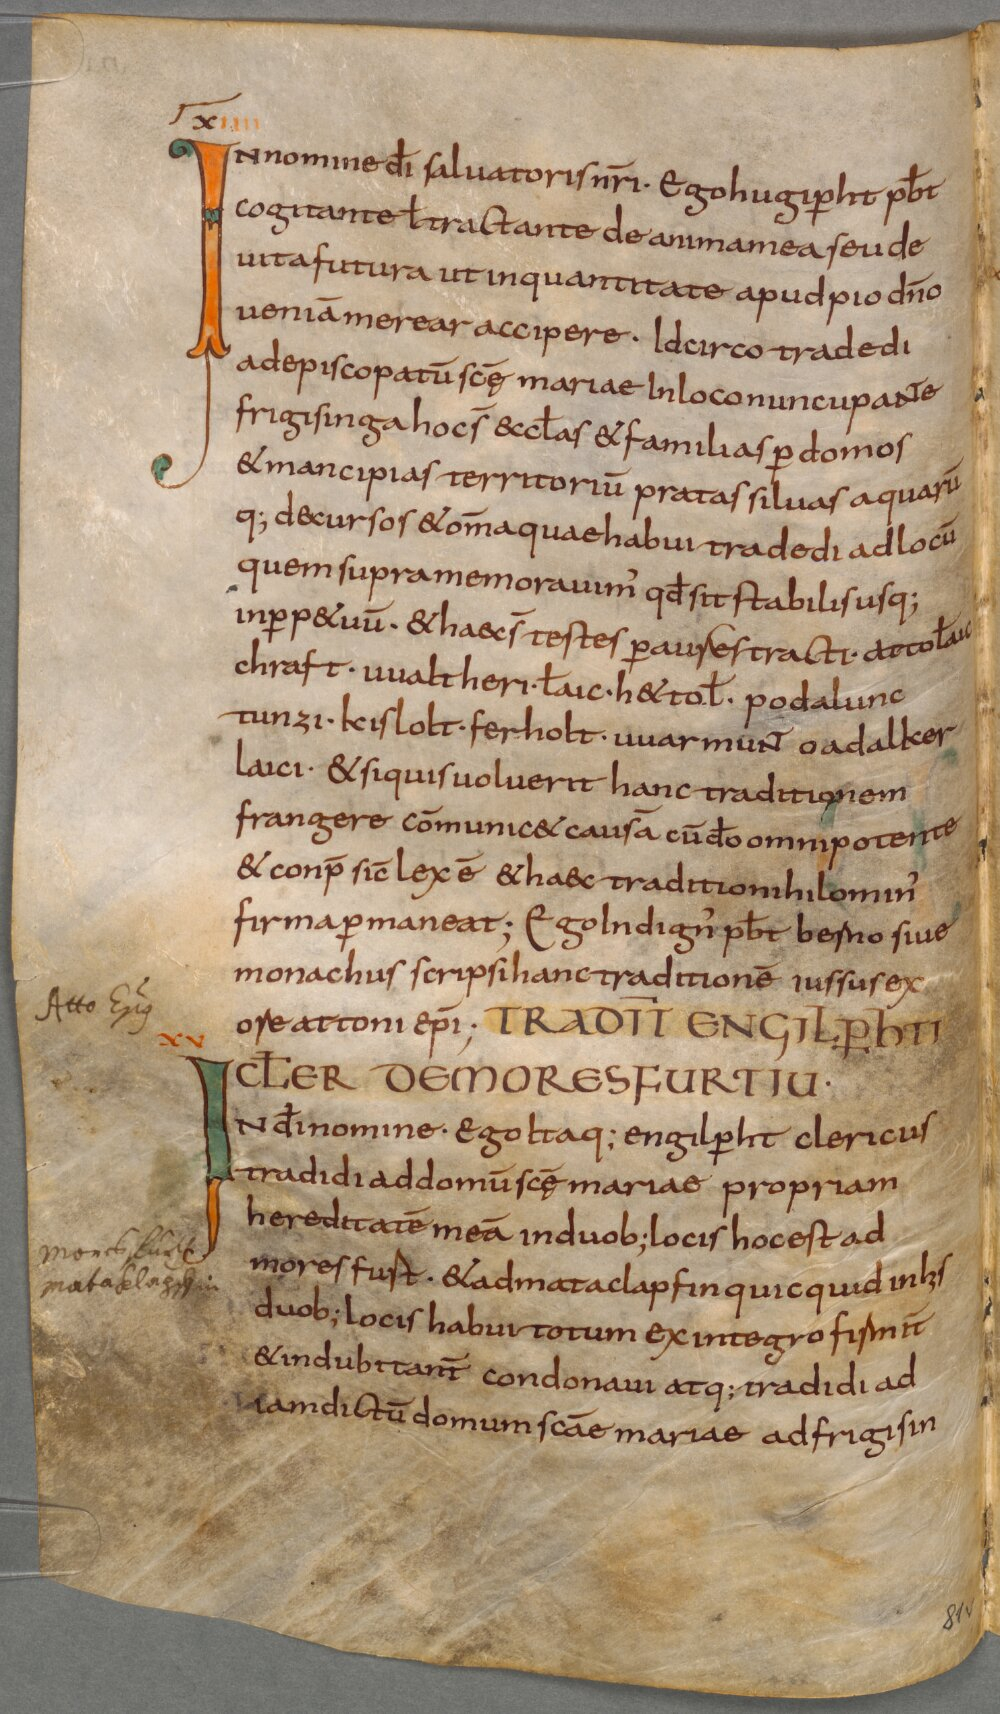 xiiii
IN nomine dī salvatoris nr̄i. Ego hugip̱ht pb̄t
cogitante ł tractante de anima mea seu de
uita futura ut in quantitate apud pio dn̄o
ueniā merear accipere. Idcirco tradedi
ad episcopatū scę̄ mariae In loco nuncupante
frigisinga hoc ē ecct̄as & familias p̱ domos
& mancipias territoriū pratas silvas aquarū
q; decursos & om̄a quae habui tradedi ad locū
quem supra memoravim᾽ qd̄ sit stabilis usq;
in p̱p&uū. & haec s̄ testes p̱ aures tracti. atto łaic
chraft. uualtheri. łaic. h&tol̄. podalunc
tunzi. kislolt. ferholt. uuarmunt oadalker
laici. & si quis voluerit hanc traditionem
frangere cōmunic& causā cū dō omnipotente
& conp̄ sic̄ lex ē & haec traditio nihilomin᾽
firma p̱maneat; Ego Indign᾽ pb̄t berno sive
monachus scripsi hanc traditionē iussus ex
Atto Ep̄s
ore attoni ep̄i; TRADIT̄ ENGILP̱HTI
xv
CL̄ER DE MORESFURTIU.
IN dī nomine. Ego itaq; engilp̱ht clericus
tradidi ad domū scę̄ mariae propriam
hereditatē meā in duob; locis hoc est ad
moresfurt. & ad mataclapfin quicquid in his
mataklapffin
duob; locis habui totum ex integro firmit̄
& indubitant̄ condonavi atq; tradidi ad
iam dictū domum scāe mariae ad frigisin
81v